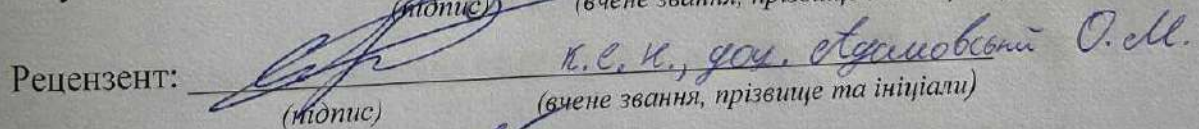 (підпис) (вчене звання,
Рецензент: к.е.н., доц. Адамовський О.М.
(підпис) (вчене звання, прізвище та ініціали)